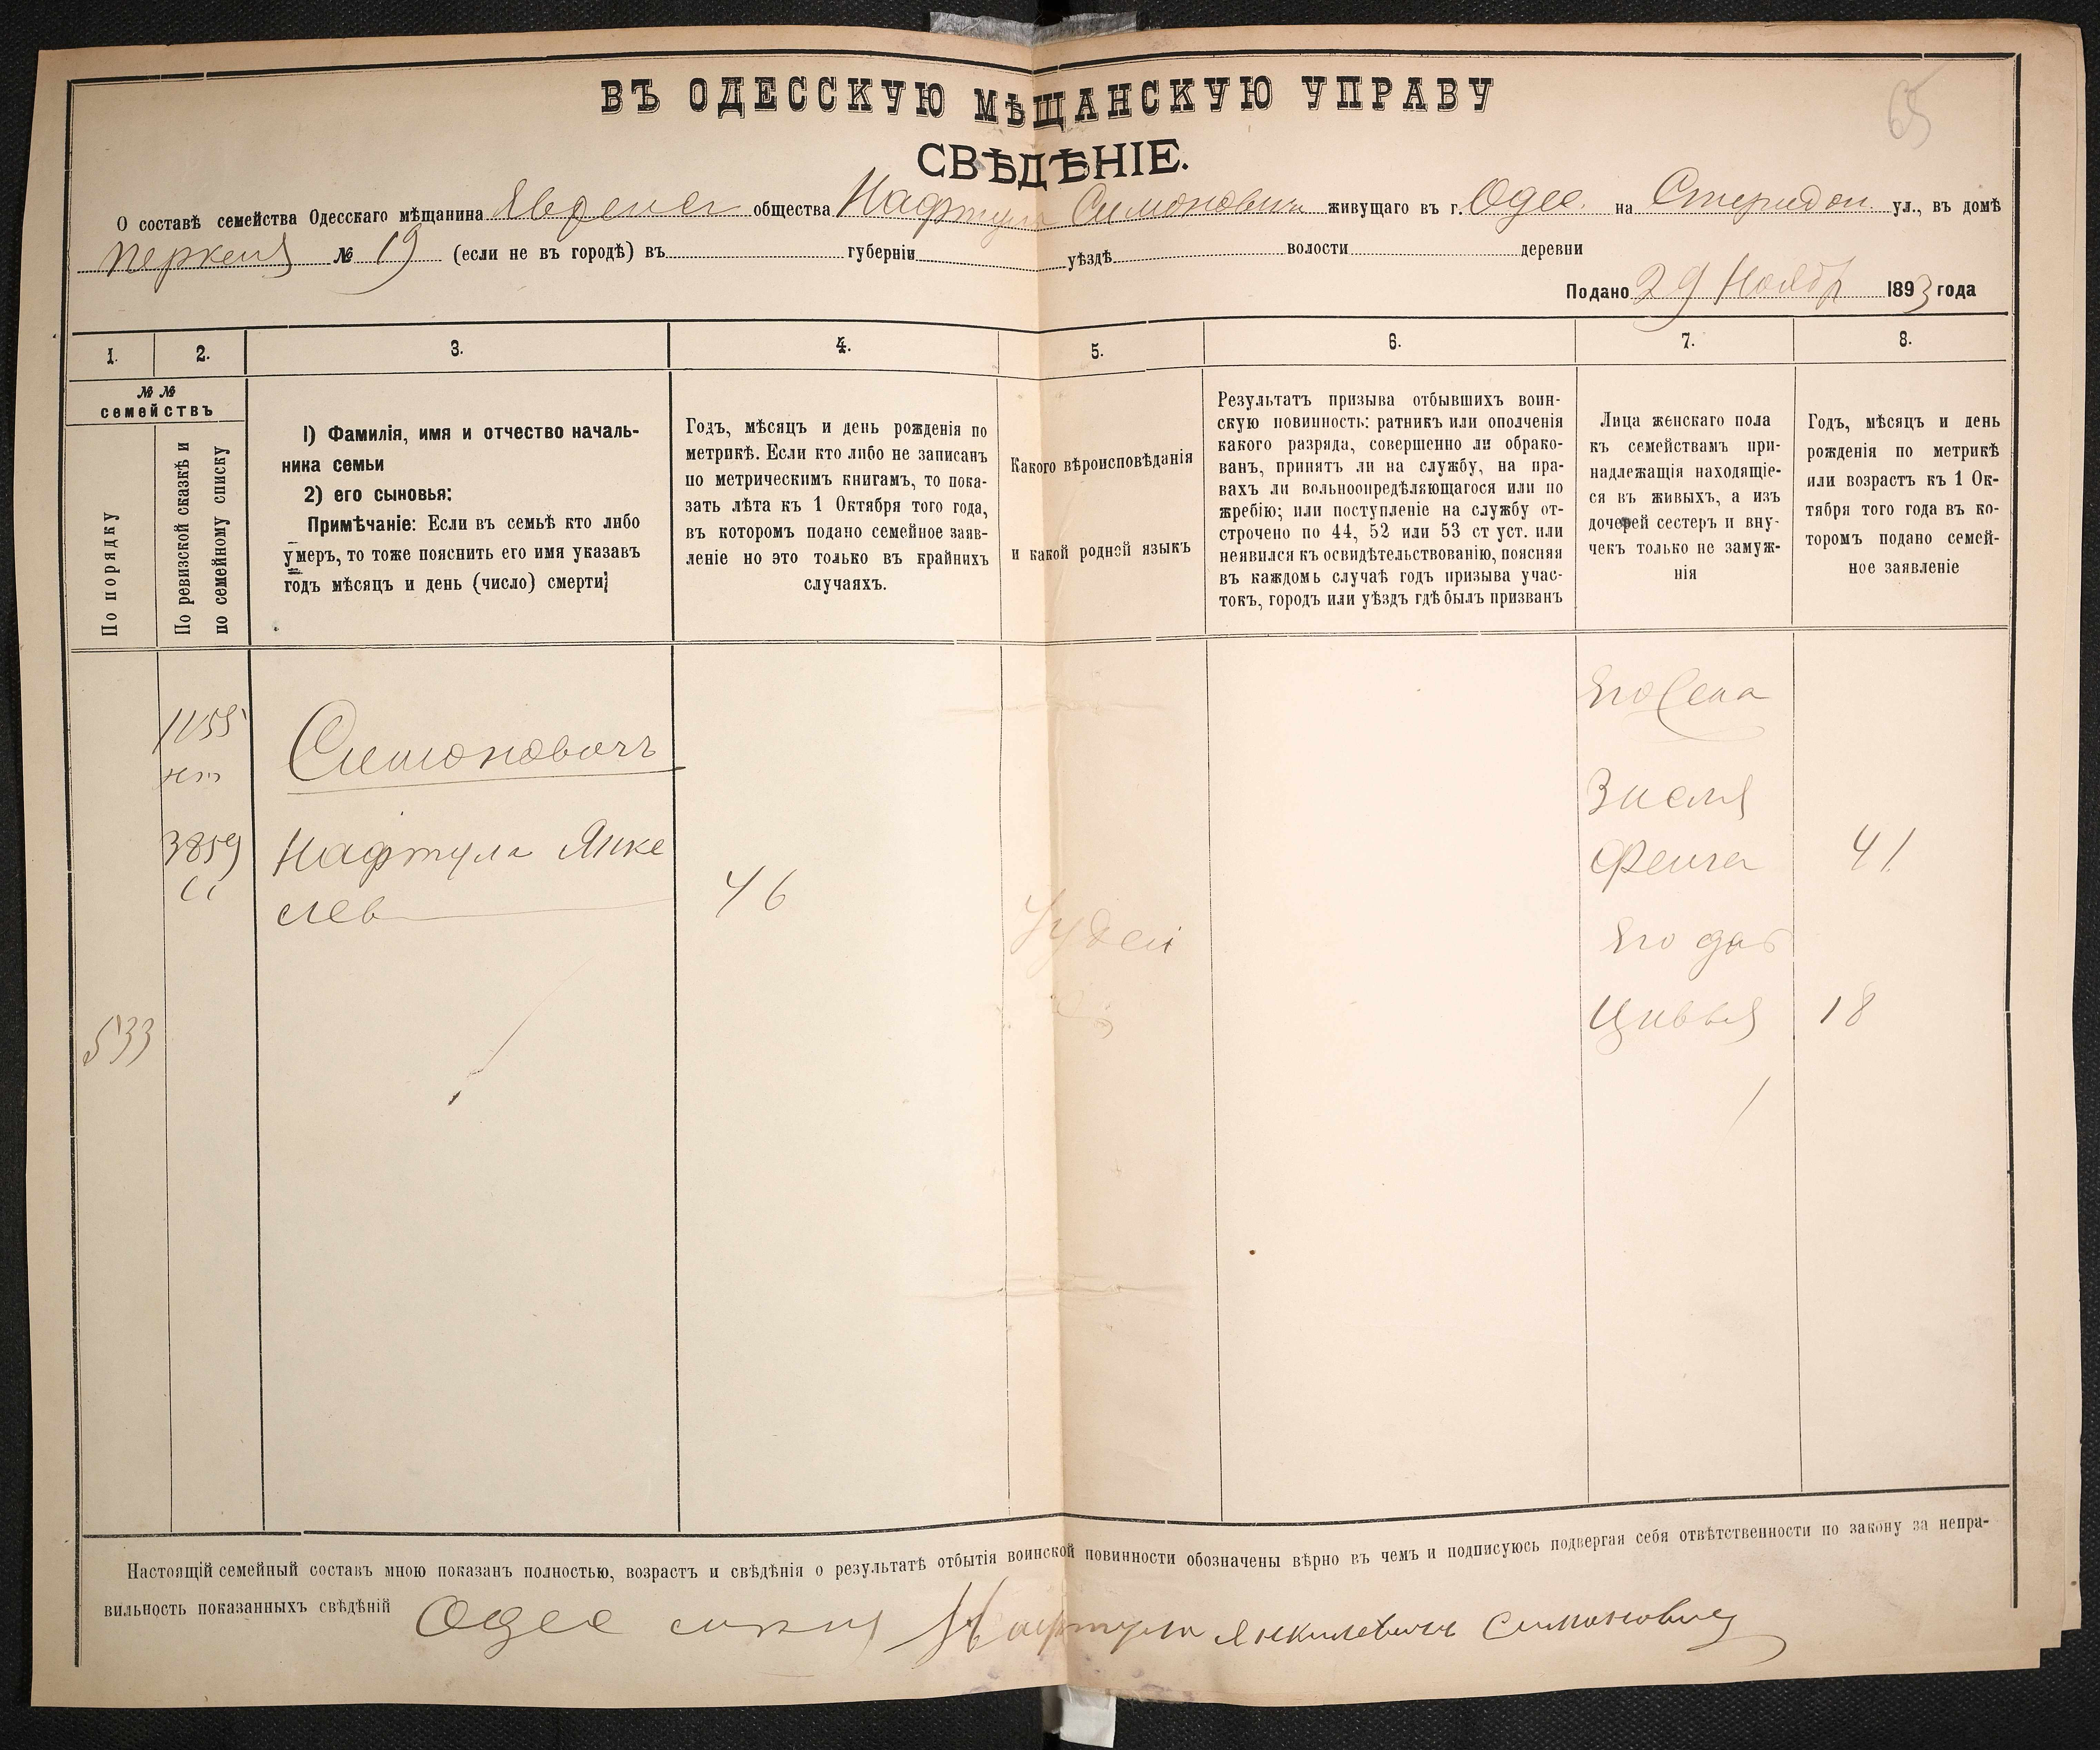 65
ВЪ ОДЕССКУЮ МѢЩАНСКУЮ УПРАВУ
СВѢДѢНІЕ.
О составѣ семейства Одесскаго мѣщанина общества Нафтула Симоновичъ живущаго въ г. Одес. на ул., въ домѣ
№ 19 (если не въ городѣ) въ губерніи уѣздѣ волости деревни
Подано 29 Ноябр 1893 года
1. 2. 3. 4. 5. 6. 7. 8.
№ №
семействъ
По порядку
По ревизской сказкѣ и
по семейному списку
1) Фамилія, имя и отчество началь-
ника семьи
2) его сыновья:
Примѣчаніе: Если въ семьѣ кто либо
умеръ, то тоже пояснить его имя указавъ
годъ мѣсяцъ и день (число) смерти;
Годъ, мѣсяцъ и день рожденія по
метрикѣ. Если кто либо не записанъ
по метрическимъ книгамъ, то пока-
зать лѣта къ 1 Октября того года,
въ которомъ подано семейное заяв-
леніе но это только въ крайнихъ
случаяхъ.
Какого вѣроисповѣданія
и какой родной языкъ
Результатъ призыва отбывшихъ воин-
скую повинность: ратникъ или ополченія
какого разряда, совершенно ли обрако-
ванъ, принятъ ли на службу, на пра-
вахъ ли вольноопредѣляющагося или по
жребію; или поступленіе на службу от-
строчено по 44, 52 или 53 ст уст. или
неявился къ освидѣтельствованію, поясняя
въ каждомъ случаѣ годъ призыва учас-
токъ, городъ или уѣздъ гдѣ былъ призванъ
Лица женскаго пола
къ семействамъ при-
надлежащія находящіе-
ся въ живыхъ, а изъ
дочерей сестеръ и вну-
чекъ только не замуж-
нія
Годъ, мѣсяцъ и день
рожденія по метрикѣ
или возрастъ къ 1 Ок-
тября того года въ ко-
торомъ подано семей-
ное заявленіе
533
3859
Симоновичъ
Нафтула Янке
лев
46
Іудей
Его
Зисля
Фейга
41
Его
Цивья
18
Настоящій семейный составъ мною показанъ полностью, возрастъ и свѣдѣнія о результатѣ отбытія воинской повинности обозначены вѣрно въ чемъ и подписуюсь подвергая себя отвѣтственности по закону за непра-
вильность показанныхъ свѣдѣній Одес Нафтула Янкилевичъ Симоновичъ